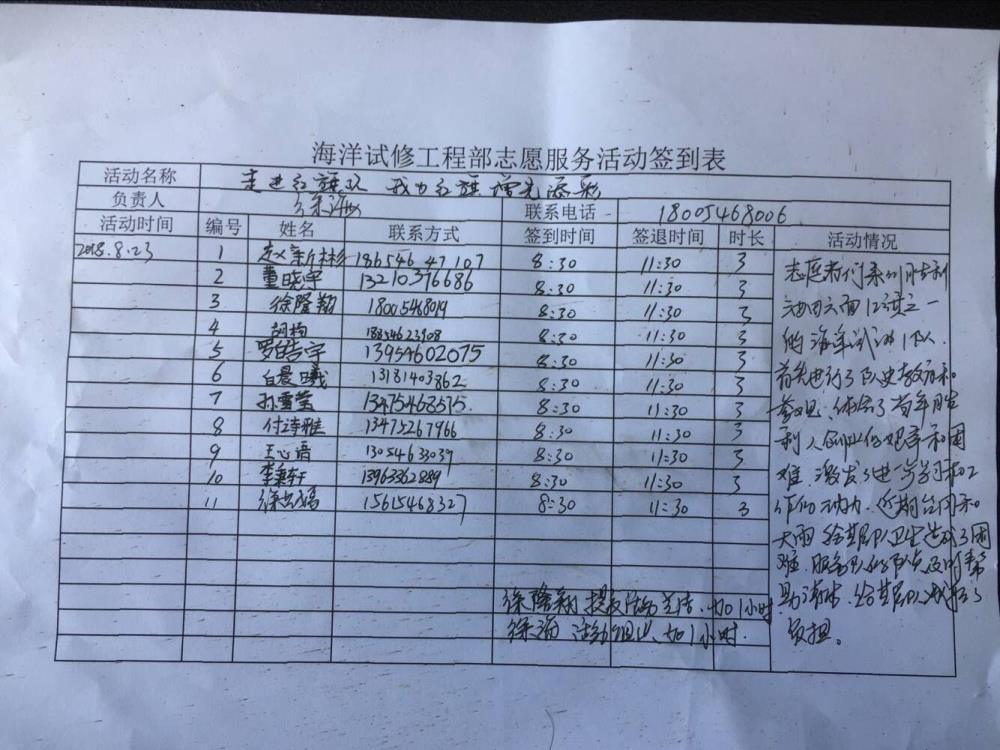 海洋试修工程部志愿服务活动签到表
活动名称 走进红旗队 我为红旗增光添彩
负责人 徐海 联系电话 18005468006
活动时间 编号 姓名 联系方式 签到时间 签退时间 时长 活动情况
2018.8.23 1 赵新彬 18654647107 8:30 11:30 3
2 董晓宇 13210376686 8:30 11:30 3
3 徐隆翔 8:30 11:30 3
4 胡 8:30 11:30 3
5 罗皓宇 13954602075 8:30 11:30 3
6 白晨曦 13181403862 8:30 11:30 3
7 孙雪莹 13475468575 8:30 11:30 3
8 付沣雅 13475267966 8:30 11:30 3
9 王心语 13054633039 8:30 11:30 3
10 李秉轩 13963362889 8:30 11:30 3
11 徐 15615468327 8:30 11:30 3
志愿者们来到胜利
油田六面红旗之一
的海洋试油1队.
首先进行了队史教育和
参观,体会了前年胜
利人创业的艰辛和困
难,激发了进一步学习和工
作的动力.近期台风和
大雨给基层队卫生造成了困
难.服务队的队员及时帮
助清 给基层队减轻了
负担。
徐隆翔 提 活动总结.加1小时
徐海 活动 加1小时.